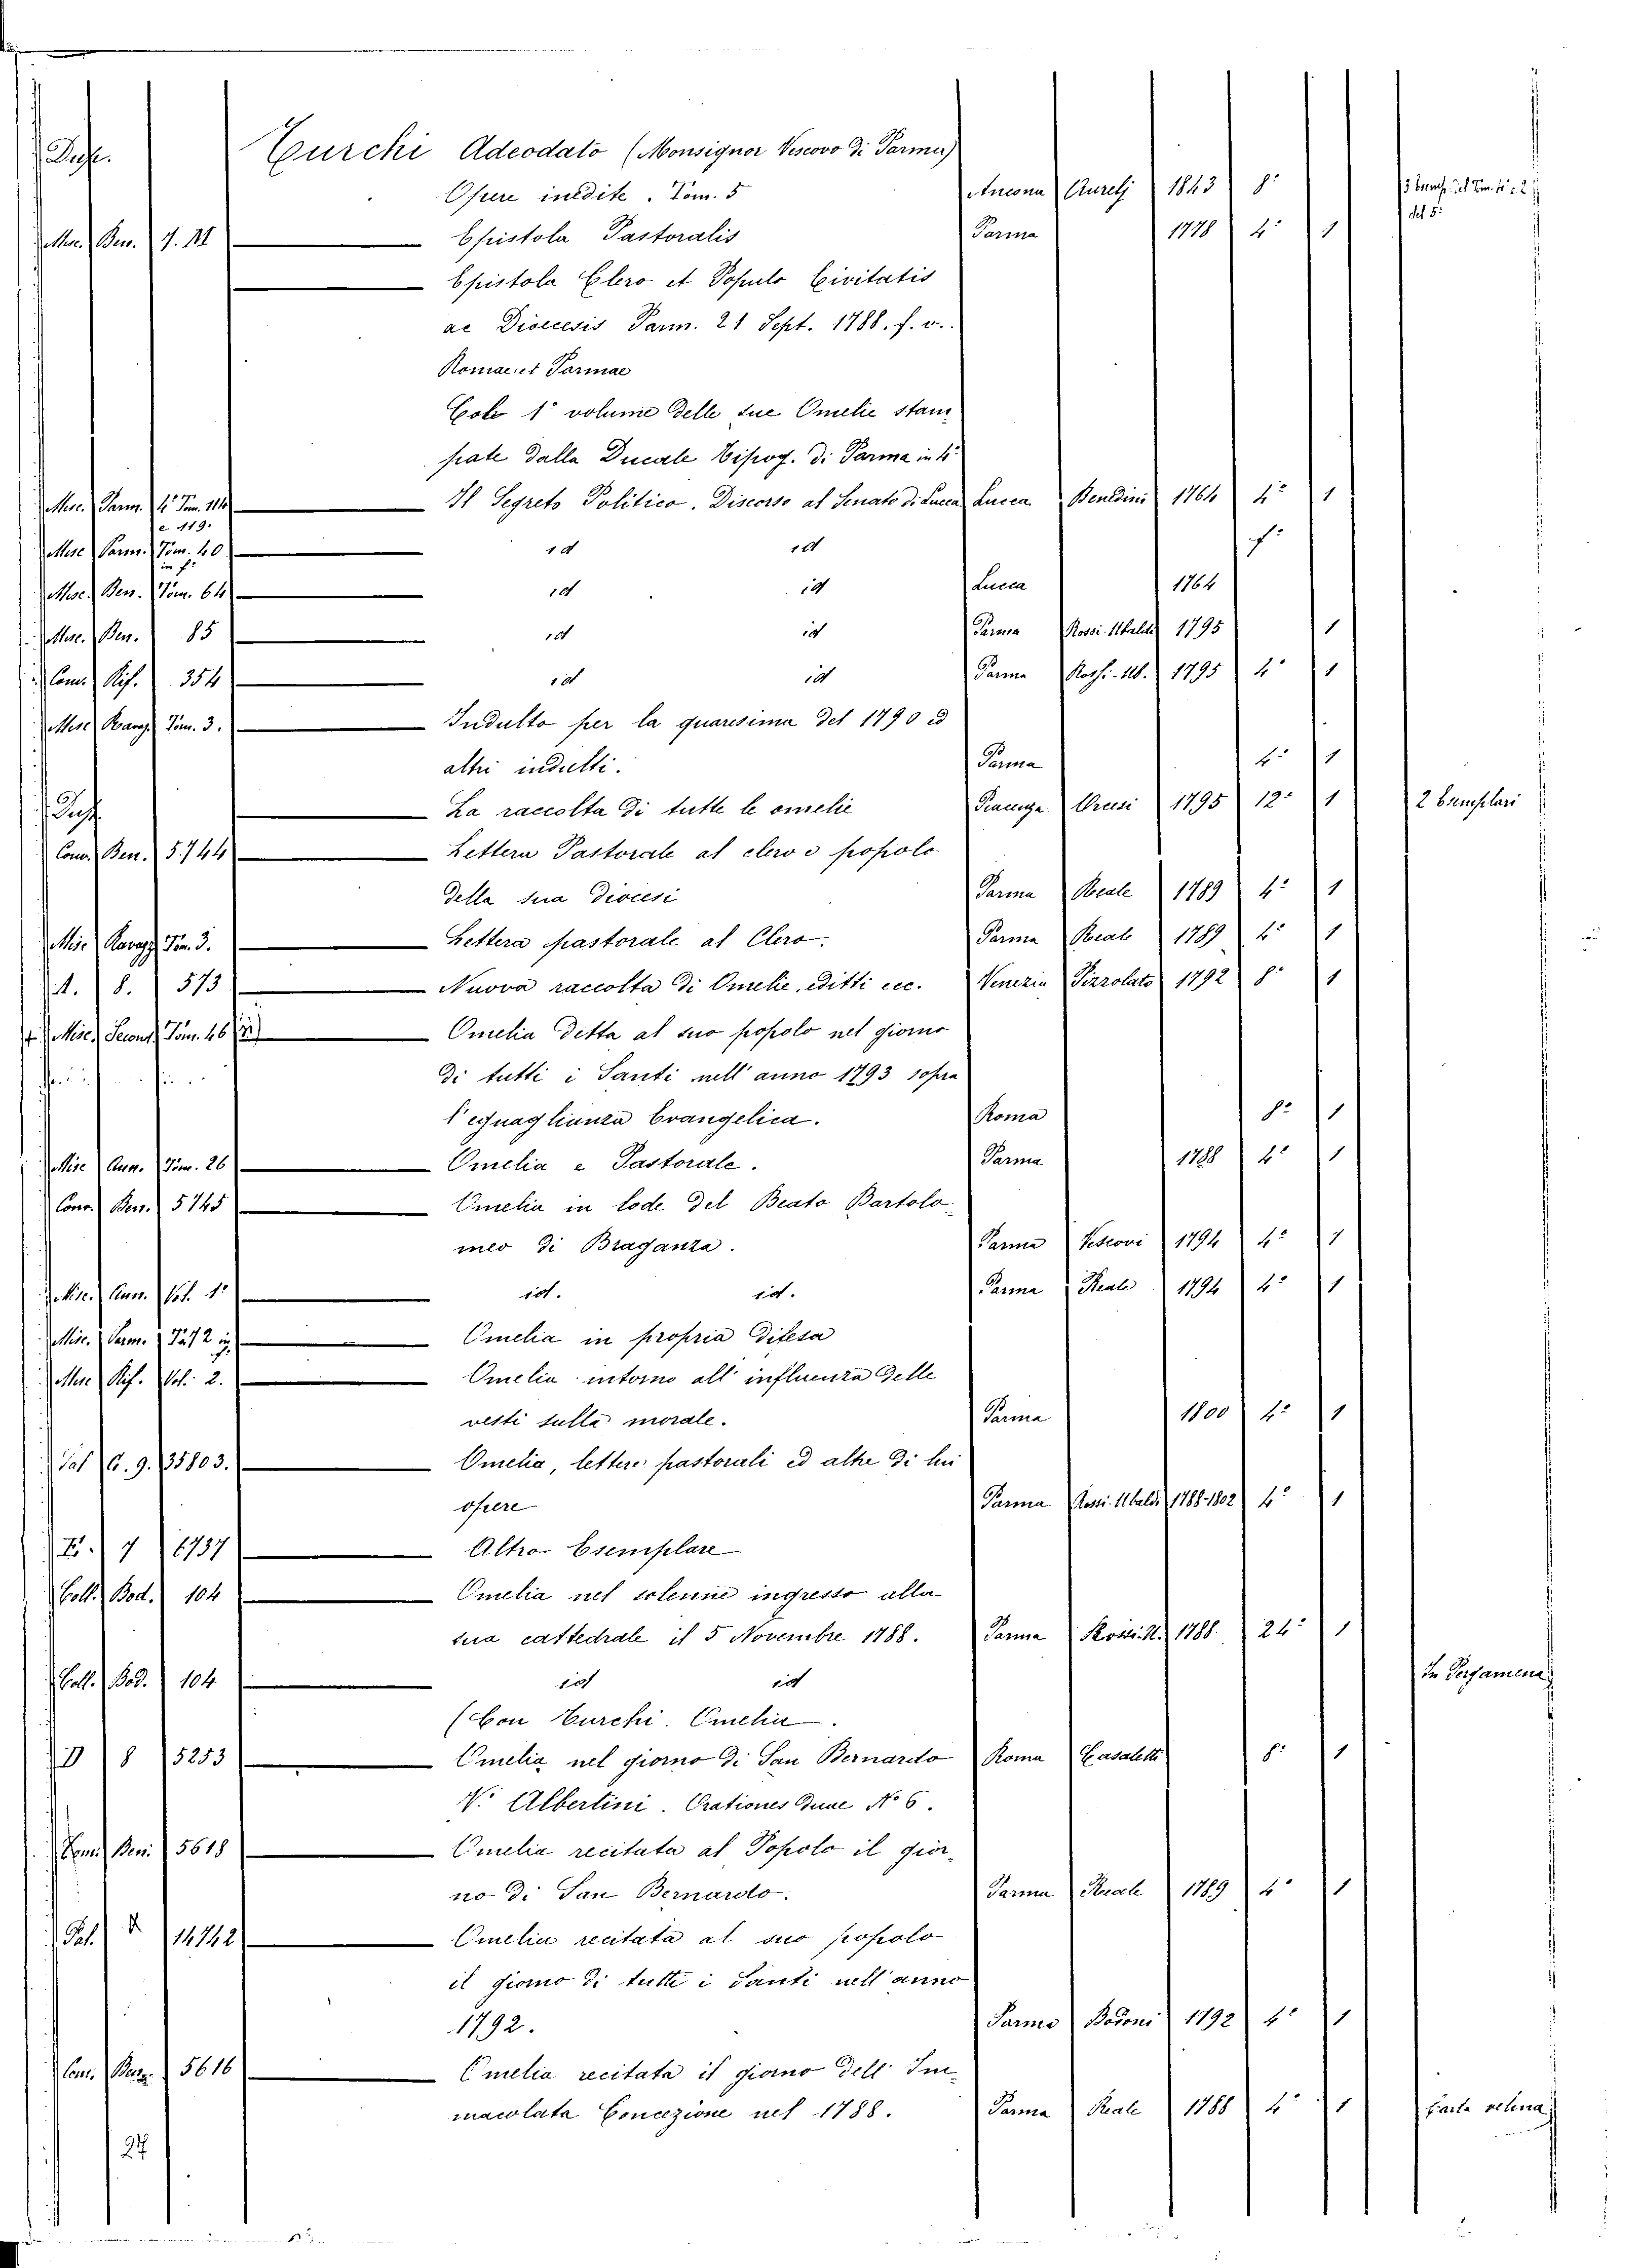 Turchi Adeodato (Monsignor Vescovo di Parma)
Opere inedite. Tom. 5 Ancona Aurelj 1843 8°
del 5°
Misc. Ben. Epistola Pastoralis Parma 1778 4° 1
Epistola Clero et Populo Civitatis
ac Dioecesis Parm. 21 Sept. 1788. f. v.
Romae et Parmae
Col 1° volume delle sue Omelie stam
pate dalla Ducale Tipog. di Parma in 4°
Misc. Parm. 4° Tom. 114 Il Segreto Politico. Discorso al Senato di Lucca Lucca Bendini 1764 4° 1
e 119.
Misc. Parm. Tom. 40 id id f°
in f°
Misc. Ben. Tom. 64 id id Lucca 1764
Misc. Ben. 85 id id Parma Rossi-Ubaldi 1795 1
Conv. Rif. 354 id id Parma Rossi-Ub. 1795 4° 1
Misc. Tom. 3. Indulto per la quaresima del 1790 ed
altri indulti. Parma 4° 1
La raccolta di tutte le omelie Piacenza Orcesi 1795 12° 1 2 Esemplari
Conv. Ben. 5744 Lettera Pastorale al clero e popolo
della sua diocesi Parma Reale 1789 4° 1
Misc. Tom. 3. Lettera pastorale al Clero. Parma Reale 1789 4° 1
A. 8. 573 Nuova raccolta di Omelie, editti ecc. Venezia Pizzolato 1792 8° 1
Misc. Second. Tom. 46 Omelia ditta al suo popolo nel giorno
di tutti i Santi nell'anno 1793 sopra
l'eguaglianza Evangelica. Roma 8° 1
Misc. Aum. Tom. 26 Omelia e Pastorale. Parma 1788 4° 1
Conv. Ben. 5745 Omelia in lode del Beato Bartolo-
meo di Braganza. Parma Vescovi 1794 4° 1
Misc. Aum. Vol. 1° id. id. Parma Reale 1794 4° 1
Misc. Parm. Omelia in propria difesa
Misc. Rif. Vol. 2. Omelia intorno all'influenza delle
vesti sulla morale. Parma 1800 4° 1
Pal G. 9. 35803. Omelia, lettere pastorali ed altre di lui
opere Parma Rossi-Ubaldi 1788-1802 4° 1
7 6737 Altro Esemplare
Coll. Bod. 104 Omelia nel solenne ingresso alla
sua cattedrale il 5 Novembre 1788. Parma Rossi-U. 1788. 24° 1
Coll. Bod. 104 id id In Pergamena
(Con Turchi. Omelia.
D 8 5253 Omelia nel giorno di San Bernardo Roma Casaletti 8° 1
V. Albertini. Orationes duae N° 6.
Conv. Ben. 5618 Omelia recitata al Popolo il gior-
no di San Bernardo. Parma Reale 1789 4° 1
Pal. 14742 Omelia recitata al suo popolo
il giorno di tutti i Santi nell'anno
1792. Parma Bodoni 1792 4° 1
Conv. 5616 Omelia recitata il giorno dell'Im-
macolata Concezione nel 1788. Parma Reale 1788 4° 1 Carta velina
27